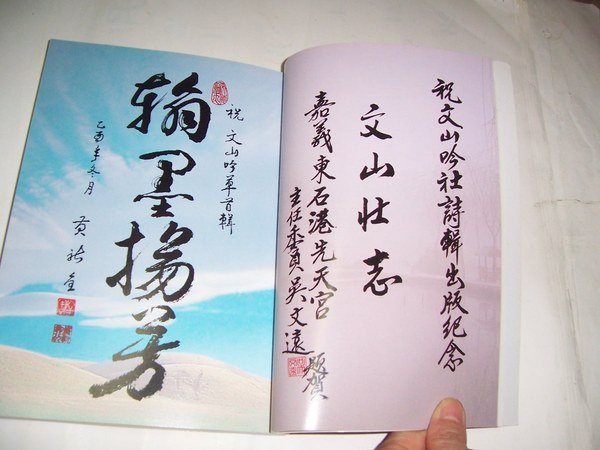 祝文山吟社詩輯出版紀念
文山壯志
嘉義東石港先天宮
主任委員吳文遠 題賀
祝 文山吟草首輯
翰墨揚芳
乙酉年冬月
黃